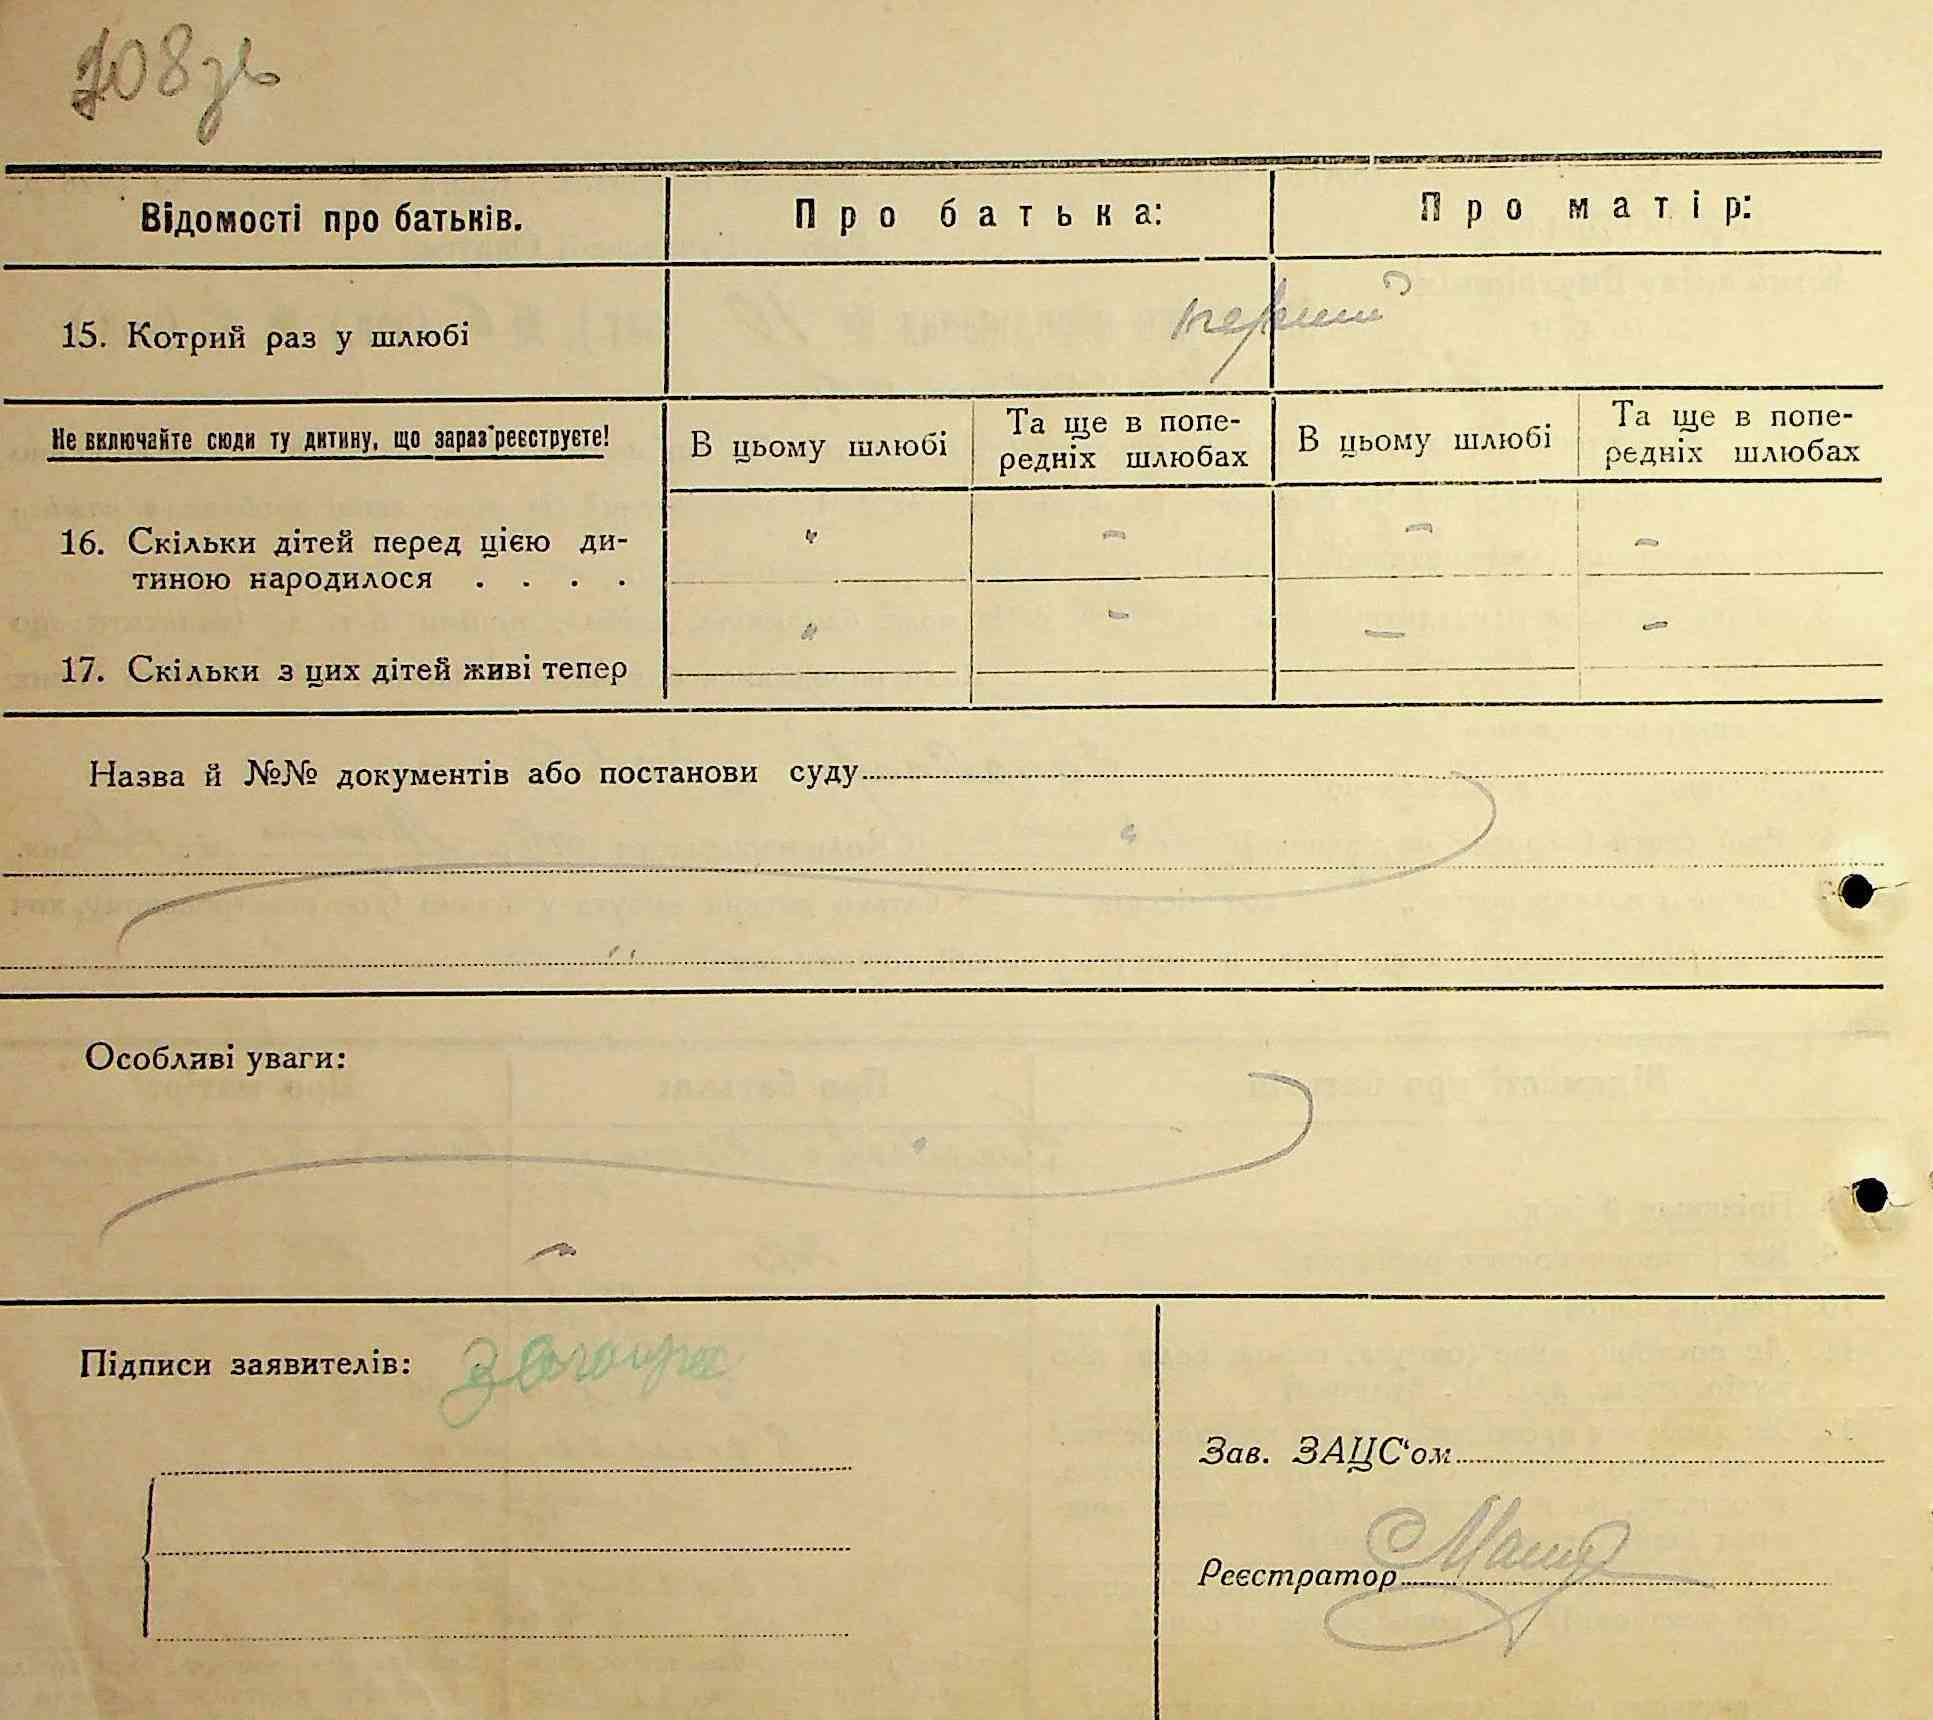 708зв
Відомості про батьків. Про батька: Про матір:
15. Котрий раз у шлюбі перший
Не включайте сюди ту дитину, що зараз реєструєте! В цьому шлюбі Та ще в попе-редніх шлюбах В цьому шлюбі Та ще в попе-редніх шлюбах
16. Скільки дітей перед цією ди- " - - -
тиною народилося . . . .
17. Скільки з цих дітей живі тепер " - - -
Назва й №№ документів або постанови суду
Особливі уваги:
Підписи заявителів:
Зав. ЗАЦС‘ом
Реєстратор